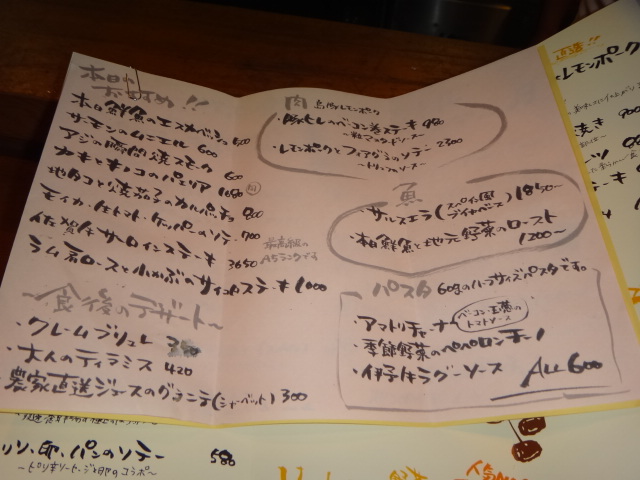 本日の
おすすめ!!
本日鮮魚のエスカベッシュ 500
サーモンのムニエル 600
アジの瞬間燻スモーク 600
カキとキノコのパエリア 1080
地タコと焼茄子のカルパッチョ 800
モイカ・生トマト・ケッパーのソテー 700
佐賀牛サーロインステーキ 3650
最高級の
A5ランクです
ラム肩ロースと小かぶのサイコロステーキ 1000
〜食後のデザート〜
・クレームブリュレ
・大人のティラミス 420
農家直送ジュースのグラニテ(シャーベット) 300
肉
・豚ヒレのベーコン巻ステーキ 980
〜粒マスタードソース〜
・レモンポークとフォアグラのソテー 2300
〜トリュフソース〜
魚
・サルスエラ(スペイン風ブイヤベース) 1850〜
・本日鮮魚と地元野菜のロースト
1200〜
パスタ 60gのハーフサイズパスタです。
・アマトリチャーナ
ベーコン・玉葱の
トマトソース
・季節野菜のペペロンチーノ
・伊予牛ラグーソース
ALL 600
レモンポーク
焼き
900
ツ 980
リゾ、卵、パンのソテー 580